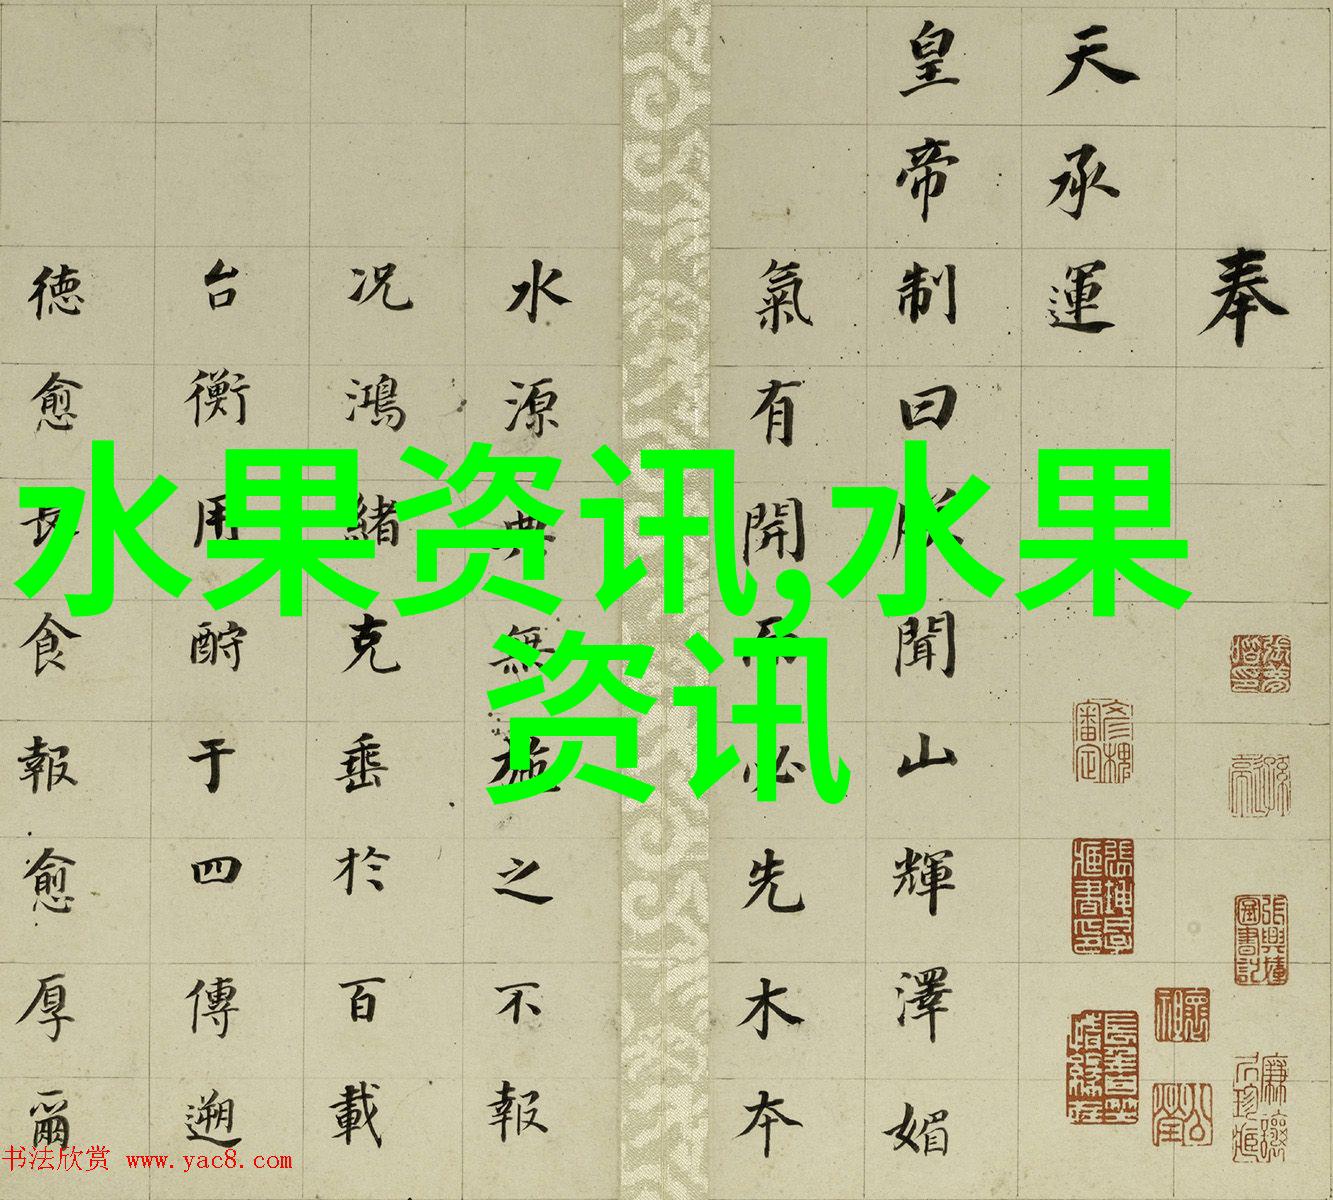 奉
天承運
皇帝制曰朕聞山輝澤媚
氣有開而必先木本
水源典無施之不報
况鴻緒克垂於百載
台衡用酧于四傳遡
德愈長食報愈厚爾
水果资讯,水果
资讯
书法欣赏 www.yac8.com